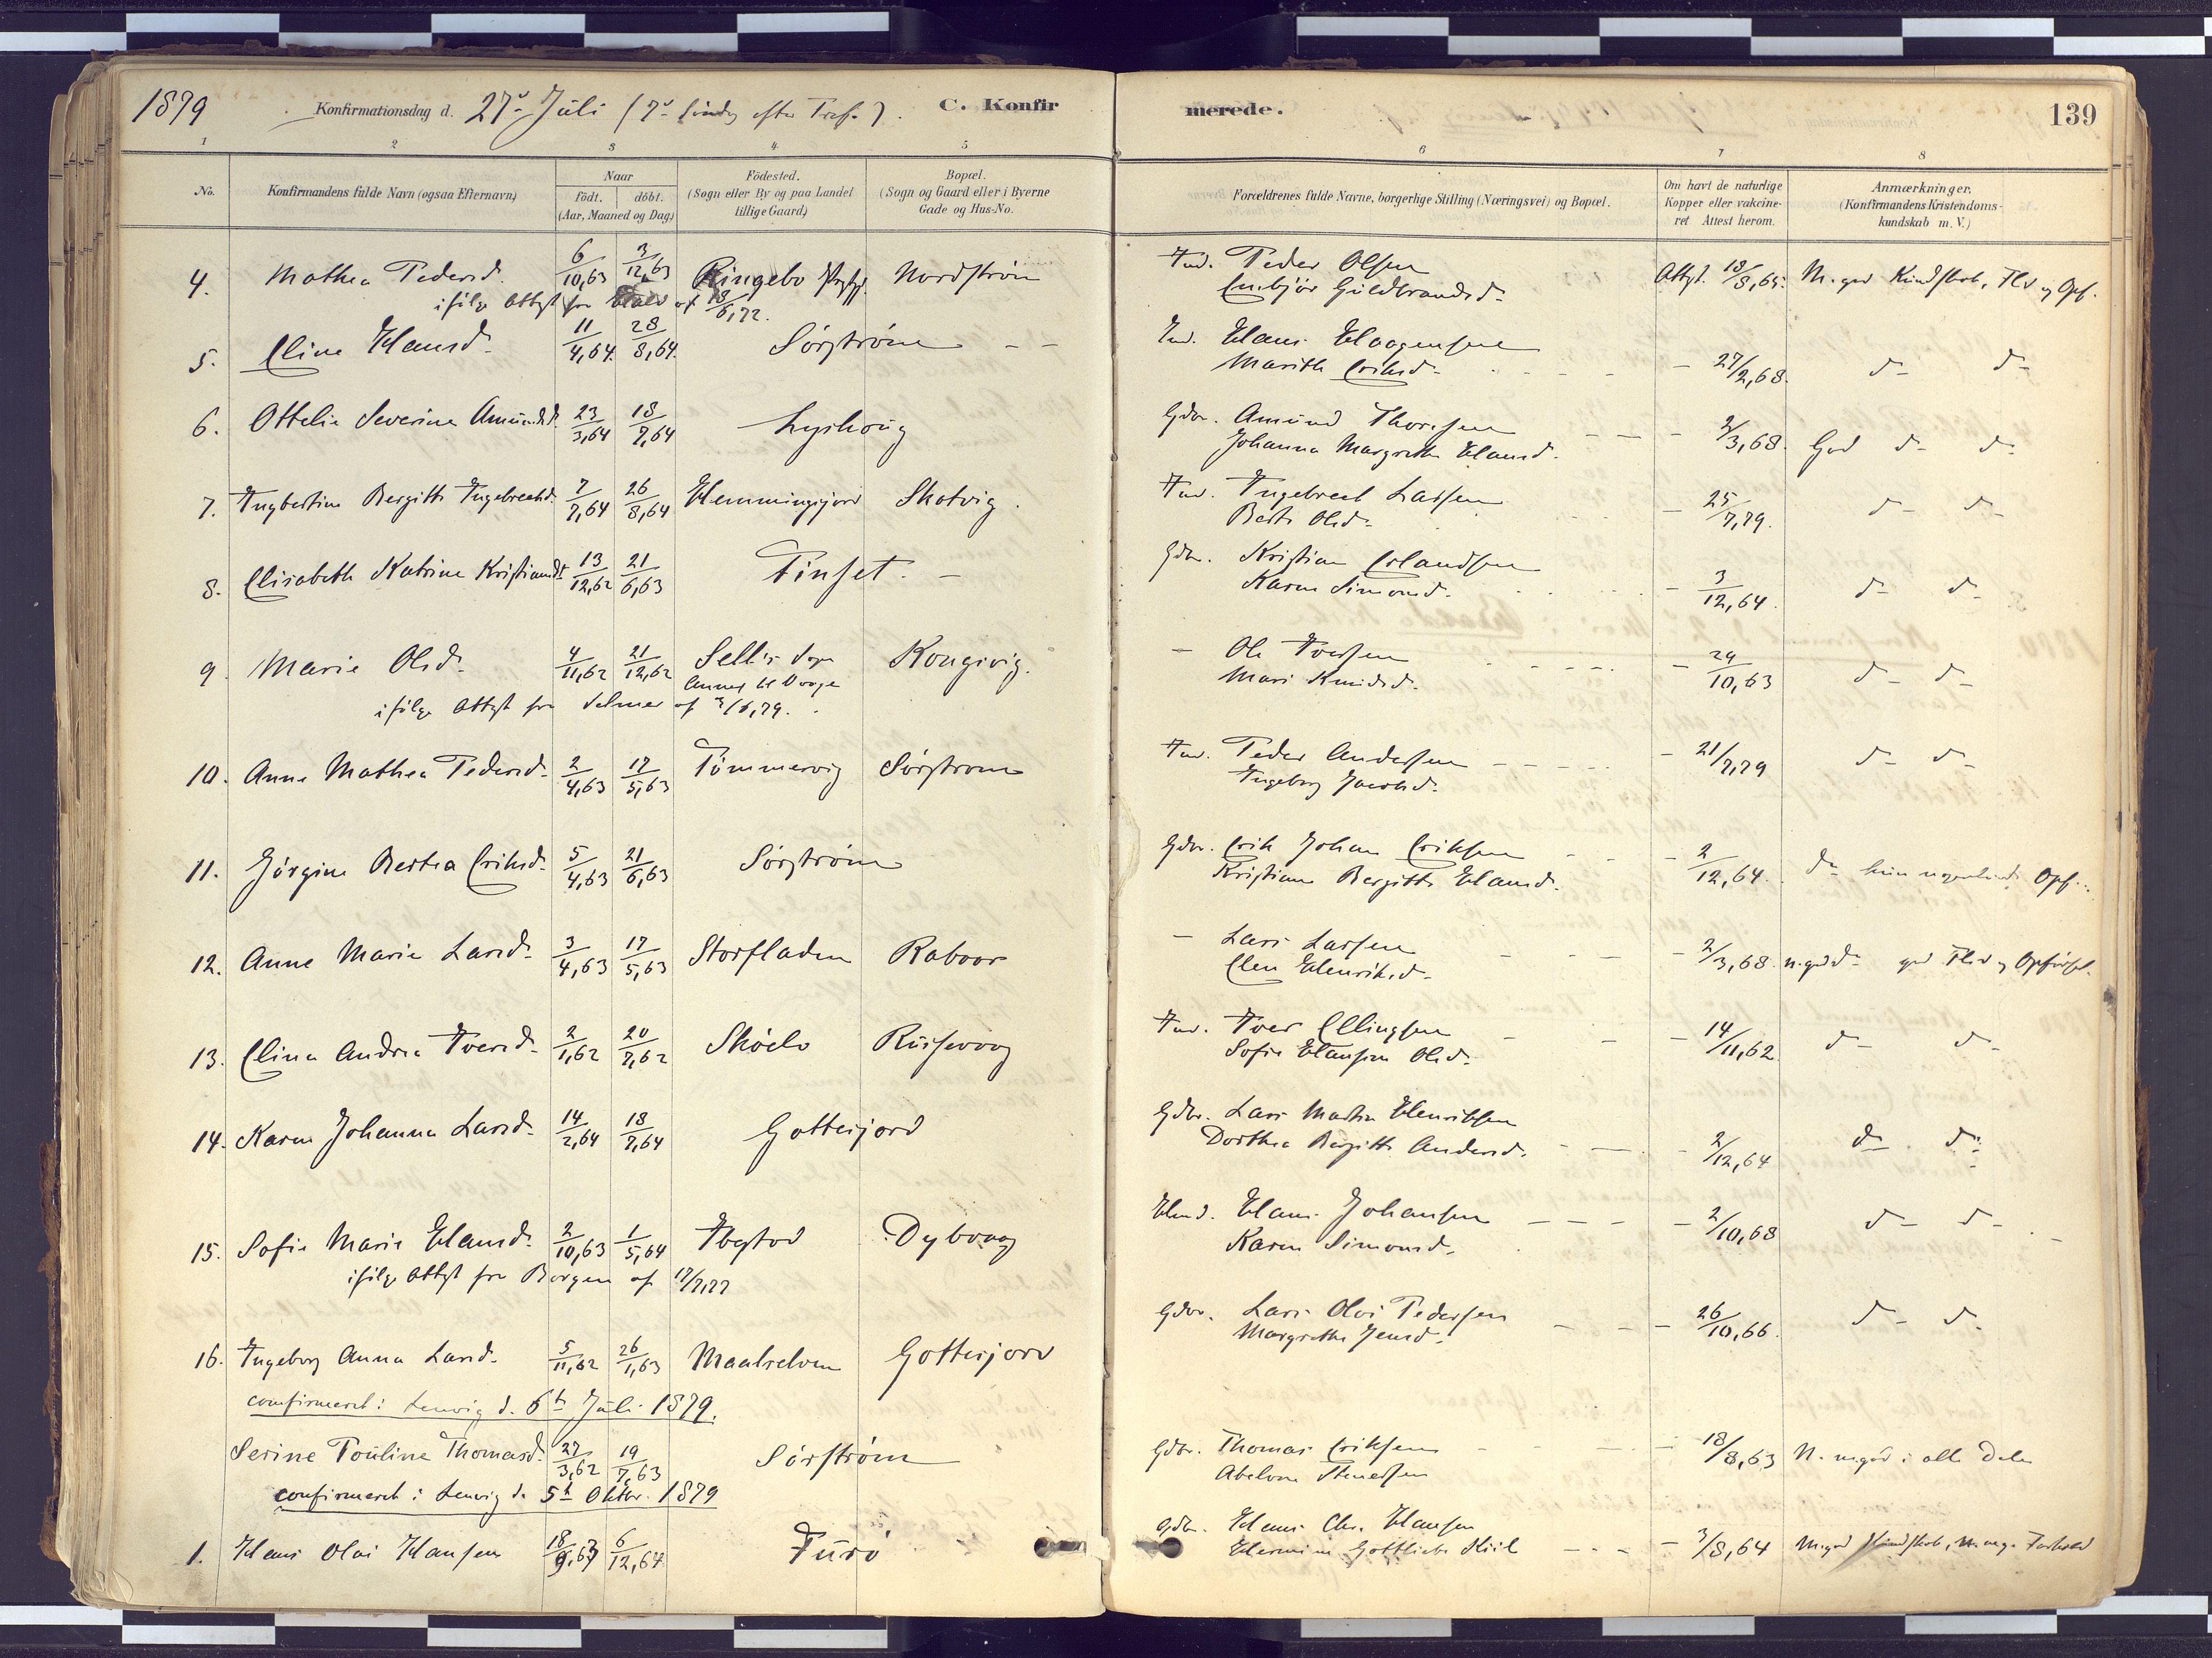 1879 Konfirmationsdag d. 27de Juli (7de Søndag efter Tref.). C. Konfirmerede. 139
1 2 3 4 5 6 7 8
No. Konfirmandens fulde Navn (ogsaa Efternavn) Naar födt. döbt. (Aar, Maaned og Dag) Födested. (Sogn eller By og paa Landet tillige Gaard) Bopæl. (Sogn og Gaard eller i Byerne Gade og Hus-No. Forældrenes fulde Navne, borgerlige Stilling (Næringsvei) og Bopæl. Om havt de naturlige Kopper eller vakcineret Attest herom. Anmærkninger. (Konfirmandens Kristendomskundskab m. V.)
4. Mathea Pedersd. 6/10,63 3/12,63 Ringebo Nordstrøm Ind. Peder Olsen Attest. 18/8,65. M. god Kundskab, Flid og Opf.
ifølge Attest fra af 18/6,72. Guldbrandsd.
5. Eline Hansd. 11/4,64. 28/8,64. Sørstrøm - - Ind. Hans Haagensen
Marith Eriksd. - 27/2,68. d- d-
6. Ottelie Severine Amundsd. 23/3,64 18/7,64 Lyshoug Gdbr. Amund Thoresen
Johanna Margrethe Hansd. - 2/3,68. God d- d-
7. Ingbertine Bergitte Ingebrectsd. 7/7,64 26/8,64 Hemmingsjord Skatvig. Ind. Ingebrect Larsen
Berte Olsd. - 25/7,79. d- d-
8. Elisabeth Katrine Kristiansd. 13/12,62 21/6,63 Finset. - Gdbr. Kristian Erlandsen
Karen Simonsd. - 3/12,64. d- d-
9. Marie Olsd. 4/11,62 21/12,62 Sell's Sogn Kongsvig. - Ole Iversen
Annex til Vaage Mari Knudsd. - 29/10,63 d- d-
ifølge Attest fra Selmer af 3/6,79.
10. Anne Mathea Pedersd. 2/4,63 17/5,63 Tømmervig Sørstrøm Ind. Peder Andersen - 21/7,79 d- d-
Ingeborg Jacobsd.
11. Jørgine Bertea Eriksd. 5/4,63 21/6,63 Sørstrøm Gdbr. Erik Johan Eriksen
Kristiane Bergitte Hansd. - 2/12,64. d- kun nogenlunde Opf.
12. Anne Marie Larsd. 3/4,63 17/5,63 Storfladen Raboor - Lars Larsen
Elen Henriksd. - 2/3,68. n. god d- god Flid og Opførsel.
13. Elina Andrea Iversd. 2/1,62 20/7,62 Skøelv Russevaag Ind. Iver Ellingsen
Sofie Hansine Olsd. - 14/11,62. d- d-
14. Karen Johanna Larsd. 14/2,64 18/7,64 Gottesjord Gdbr. Lars Martin Henriksen
Dorthea Bergitte Andersd. - 2/12,64 d- d-
15. Sofie Marie Hansd. 2/10,63 1/5,64 Ibestad Dyvaag Hmd. Hans Johansen - 2/10,68 d- d-
Karen Simonsd.
ifølge Attest fra Borgen af 17/7,77
16. Ingeborg Anna Larsd. 5/11,62 26/1,63 Maalselven Gottesjord Gdbr. Lars Olai Pedersen
Margrethe Jensd. - 26/10,66. d- d-
confirmeret i Lenvig d. 6te Juli 1879.
Serine Pouline Thomasd. 27/3,62 19/7,63 Sørstrøm Gdbr. Thomas Eriksen
Abelone Stenersen - 18/8,63 N. god i alle Dele
confirmeret i Lenvig d. 5te Oktbr. 1879
1. Hans Olai Hansen 18/9,63 6/12,64 Furø Gdbr. Hans Chr. Hansen
Hermine Gottliebe Kiil - 3/8,64 M. god Kundskab, Forhold